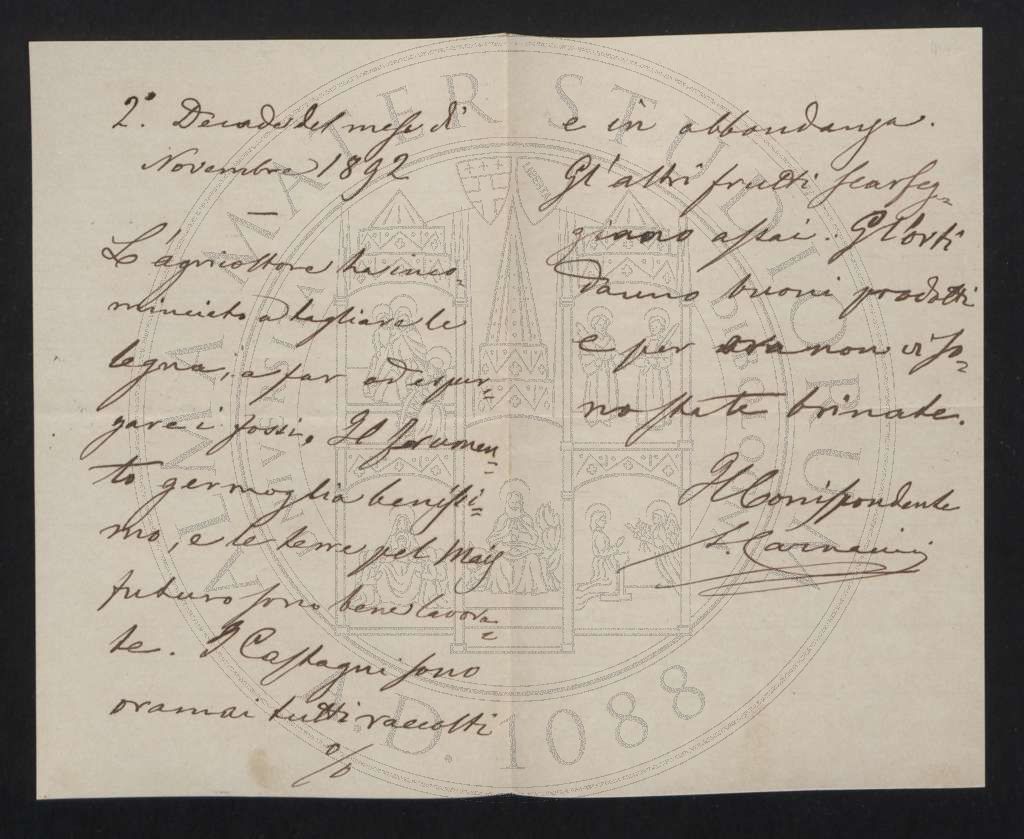 2.ª Decade del mese di
Novembre 1892
L'agricoltore ha inco-
minciato a tagliare le
legna, a far ad espur=
gare i fossi. Il frumen=
to germoglia benissi=
mo, e le terre pel Maiz
futuro sono bene lavora=
te. I Castagni sono
oramai tutti raccolti
%
e in abbondanza.
Gl'altri frutti scarseg=
giano assai. Gl'orti
danno buoni prodotti
e per ora non vi so=
no state brinate.
Il Corrispondente
ALMA MATER STUDIORUM
A.D. 1088